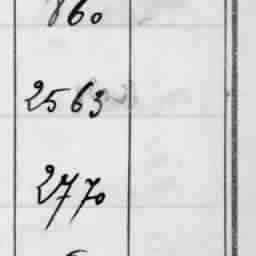 860
2563
2770